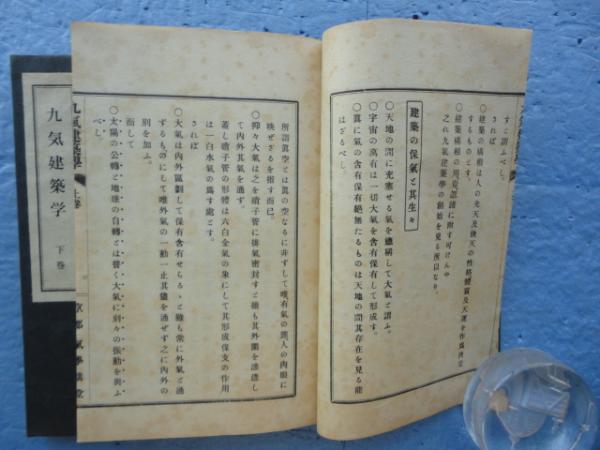 すと謂ふべし。
○建築の禍根は人の先天及後天の性格體質及天運を作爲決定
するものとす。
されば
○建築禍根の用意認識に附す可けんや
之れ九氣建築學の創始を見る所以なり。
建築の保氣と其生々
○天地の間に充塞せる氣を總稱して大氣と謂ふ。
○宇宙の萬有は一切大氣を含有保有して形成す。
○眞に氣の含有保有絕無たるものは天地の間其存在を見る能
はざるべし。
所謂眞空とは眞の空なるに非ずして唯有氣の誰人の肉眼に
映ぜざるを指す而已。
○抑々大氣は之を硝子管に排氣密封すと雖も其外圍を滲透し
て內外其氣を通ず。
蓋し硝子管の形體は六白金氣の象にして其形成保支の作用
は一白水氣の爲す處とす。
されば
○大氣は內外區劃して保有含有せらるゝと雖も常に外氣と通
ずるものにして唯外氣の一動一止其儘を通ぜず之に內外の
別を加ふ。
而して
○太陽の公轉と地球の自轉とは普く大氣に刻々の振動を與ふ
べし。
九氣建築學 上卷
京都 氣學
九気建築学 下巻